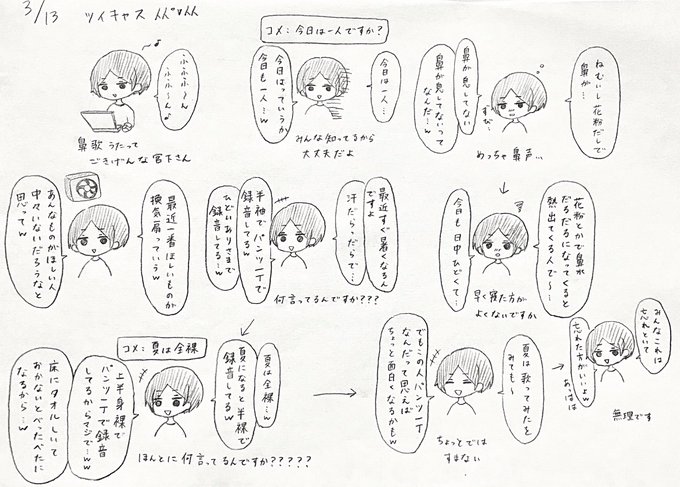 3/13 ツイキャス
ねむいし花粉だしで
鼻が…
鼻が息してない
鼻が息してないって
なんだ…w
ずび…
めっちゃ鼻声…
花粉とかで鼻水
だるだるになってくると
熱出てくる人で〜…
今日も日中ひどくて…
早く寝た方が
よくないですか
コメ：今日は一人ですか？
今日は一人…
今日はっていうか
今日も一人…w
みんな知ってるから
大丈夫だよ
ふふふ〜ん
ふ〜ふ〜ん♪
鼻歌うたって
ごきげんな宮下さん
最近すぐ暑くなるん
ですよ
汗だらっだらで…
半袖でパンツ一丁で
録音してる…w
ひどいありさまで
録音してる…w
何言ってるんですか???
最近一番ほしいものが
換気扇っていうw
あんなものがほしい人
中々いないだろうなと
思ってw
コメ：夏は全裸
夏は全裸…w
夏になると半裸で
録音してるw
上半身裸で
パンツ一丁で録音
してるからマジで…ww
床にタオルしいて
おかないとべったべたに
なるから…w
ほんとに何言ってるんですか?????
夏は歌ってみたを
みても〜
でもこの人パンツ一丁
なんだって思えば
ちょっと面白くなるかもw
ちょっとでは
すまない
みんなこれは
忘れといて
忘れた方がいいよw
あっはは
無理です